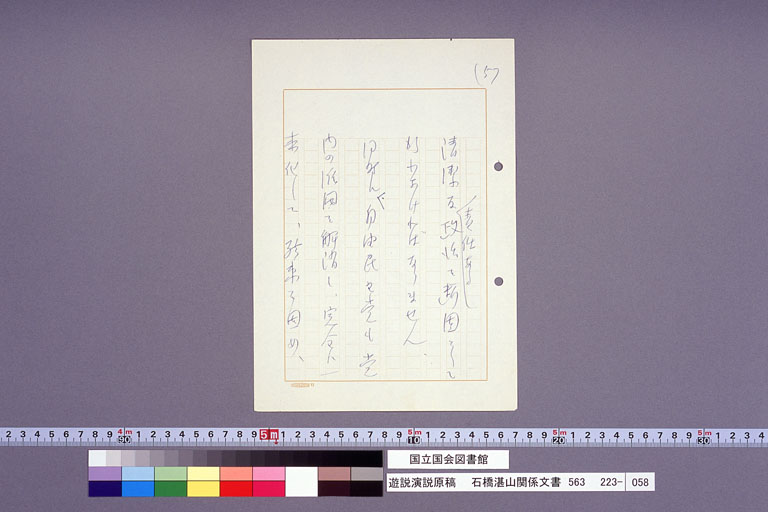 (5)
清潔な政治を断固として
責任をもって
行わなければなりません。
自由民主党も党
内の派閥を解消し、完全に一
本化して、結束を固め、
国立国会図書館
遊説演説原稿 石橋湛山関係文書 563 223- 058